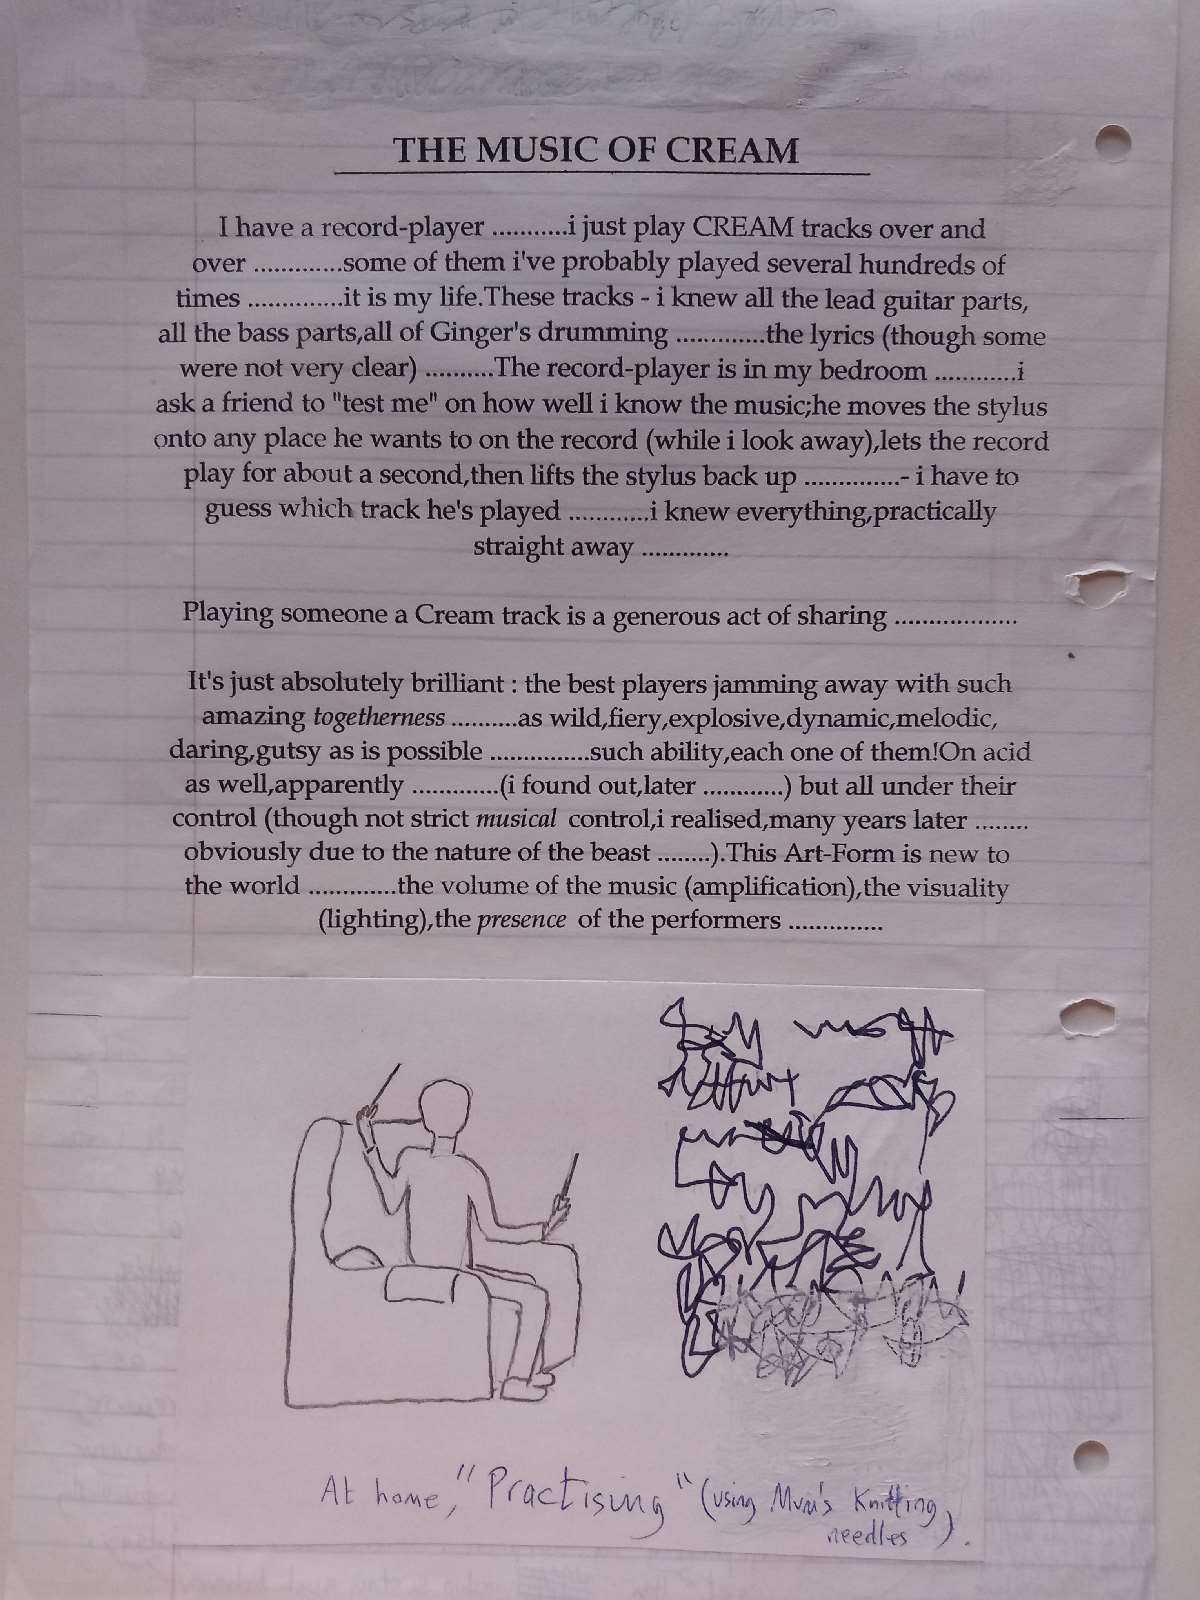 THE MUSIC OF CREAM
I have a record-player ...........i just play CREAM tracks over and
over .............some of them i've probably played several hundreds of
times ..............it is my life.These tracks - i knew all the lead guitar parts,
all the bass parts,all of Ginger's drumming .............the lyrics (though some
were not very clear) ..........The record-player is in my bedroom ............i
ask a friend to "test me" on how well i know the music;he moves the stylus
onto any place he wants to on the record (while i look away),lets the record
play for about a second,then lifts the stylus back up ..............- i have to
guess which track he's played ............i knew everything,practically
straight away .............
Playing someone a Cream track is a generous act of sharing ..................
It's just absolutely brilliant : the best players jamming away with such
amazing togetherness ..........as wild,fiery,explosive,dynamic,melodic,
daring,gutsy as is possible ...............such ability,each one of them!On acid
as well,apparently .............(i found out,later ............) but all under their
control (though not strict musical control,i realised,many years later ........
obviously due to the nature of the beast ........).This Art-Form is new to
the world .............the volume of the music (amplification),the visuality
(lighting),the presence of the performers ..............
At home, "Practising" (using Mum's Knitting
needles).